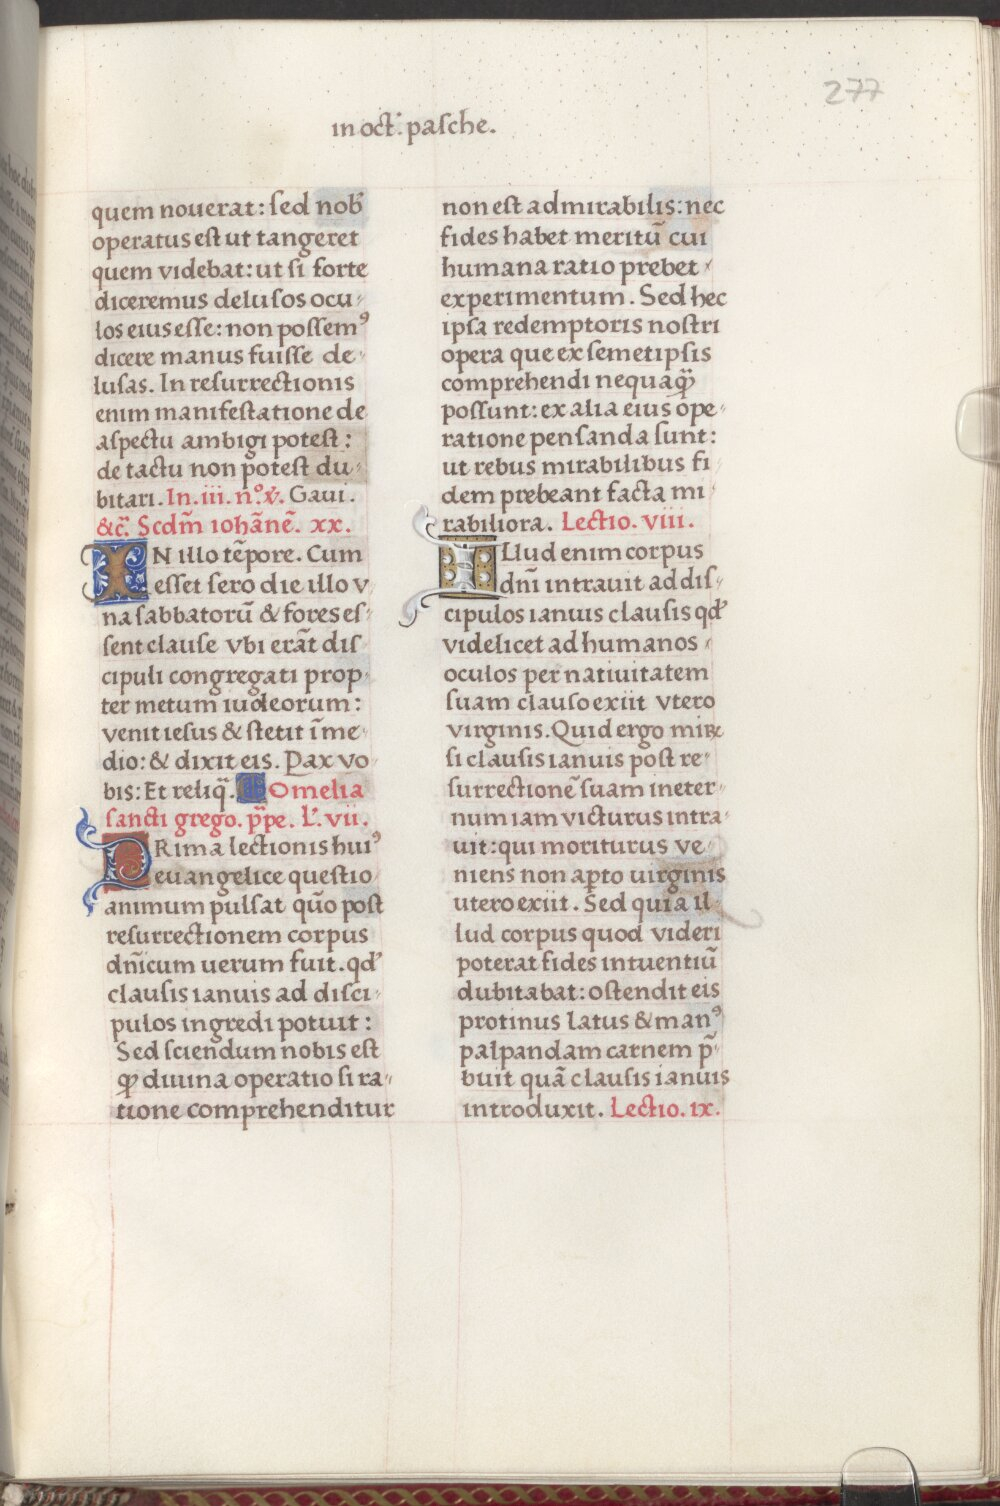 277
in oct̄. pasche.
quem nouerat: sed nob̾
operatus est ut tangeret
quem videbat: ut si forte
diceremus delusos ocu-
los eius esse: non possemꝰ
dicere manus fuisse de-
lusas. In resurrectionis
enim manifestatione de
aspectu ambigi potest:
de tactu non potest du-
bitari. In. iii. n.º ℣. Gaui.
&c̄. Scdm̄ iohānē. xx.
IN illo tēpore. Cum
esset sero die illo v-
na sabbatorū & fores es-
sent clause vbi erāt dis-
cipuli congregati prop-
ter metum iudeorum:
venit iesus & stetit ī me-
dio: & dixit eis. Pax vo-
bis: Et reliq̄. Omelia
sancti grego. p̄pe. L'. vii.
PRima lectionis huiꝰ
euangelice questio
animum pulsat qūo post
resurrectionem corpus
dn̄icum uerum fuit. qđ
clausis ianuis ad disci-
pulos ingredi potuit:
Sed sciendum nobis est
ꝙ diuina operatio si ra-
tione comprehenditur
non est admirabilis: nec
fides habet meritū cui
humana ratio prebet
experimentum. Sed hec
ipsa redemptoris nostri
opera que ex semetipsis
comprehendi nequaq̄̃
possunt: ex alia eius ope-
ratione pensanda sunt:
ut rebus mirabilibus fi-
dem prebeant facta mi-
rabiliora. Lectio. viii.
ILlud enim corpus
dn̄i intrauit ad dis-
cipulos ianuis clausis qđ
videlicet ad humanos
oculos per natiuitatem
suam clauso exiit vtero
virginis. Quid ergo mirꝝ
si clausis ianuis post re-
surrectionē suam in eter-
num iam victurus intra-
uit: qui moriturus ve-
niens non apto uirginis
utero exiit. Sed quia il-
lud corpus quod videri
poterat fides intuentiū
dubitabat: ostendit eis
protinus latus & manꝰ
palpandam carnem p̄-
buit quā clausis ianuis
introduxit. Lectio. ix.